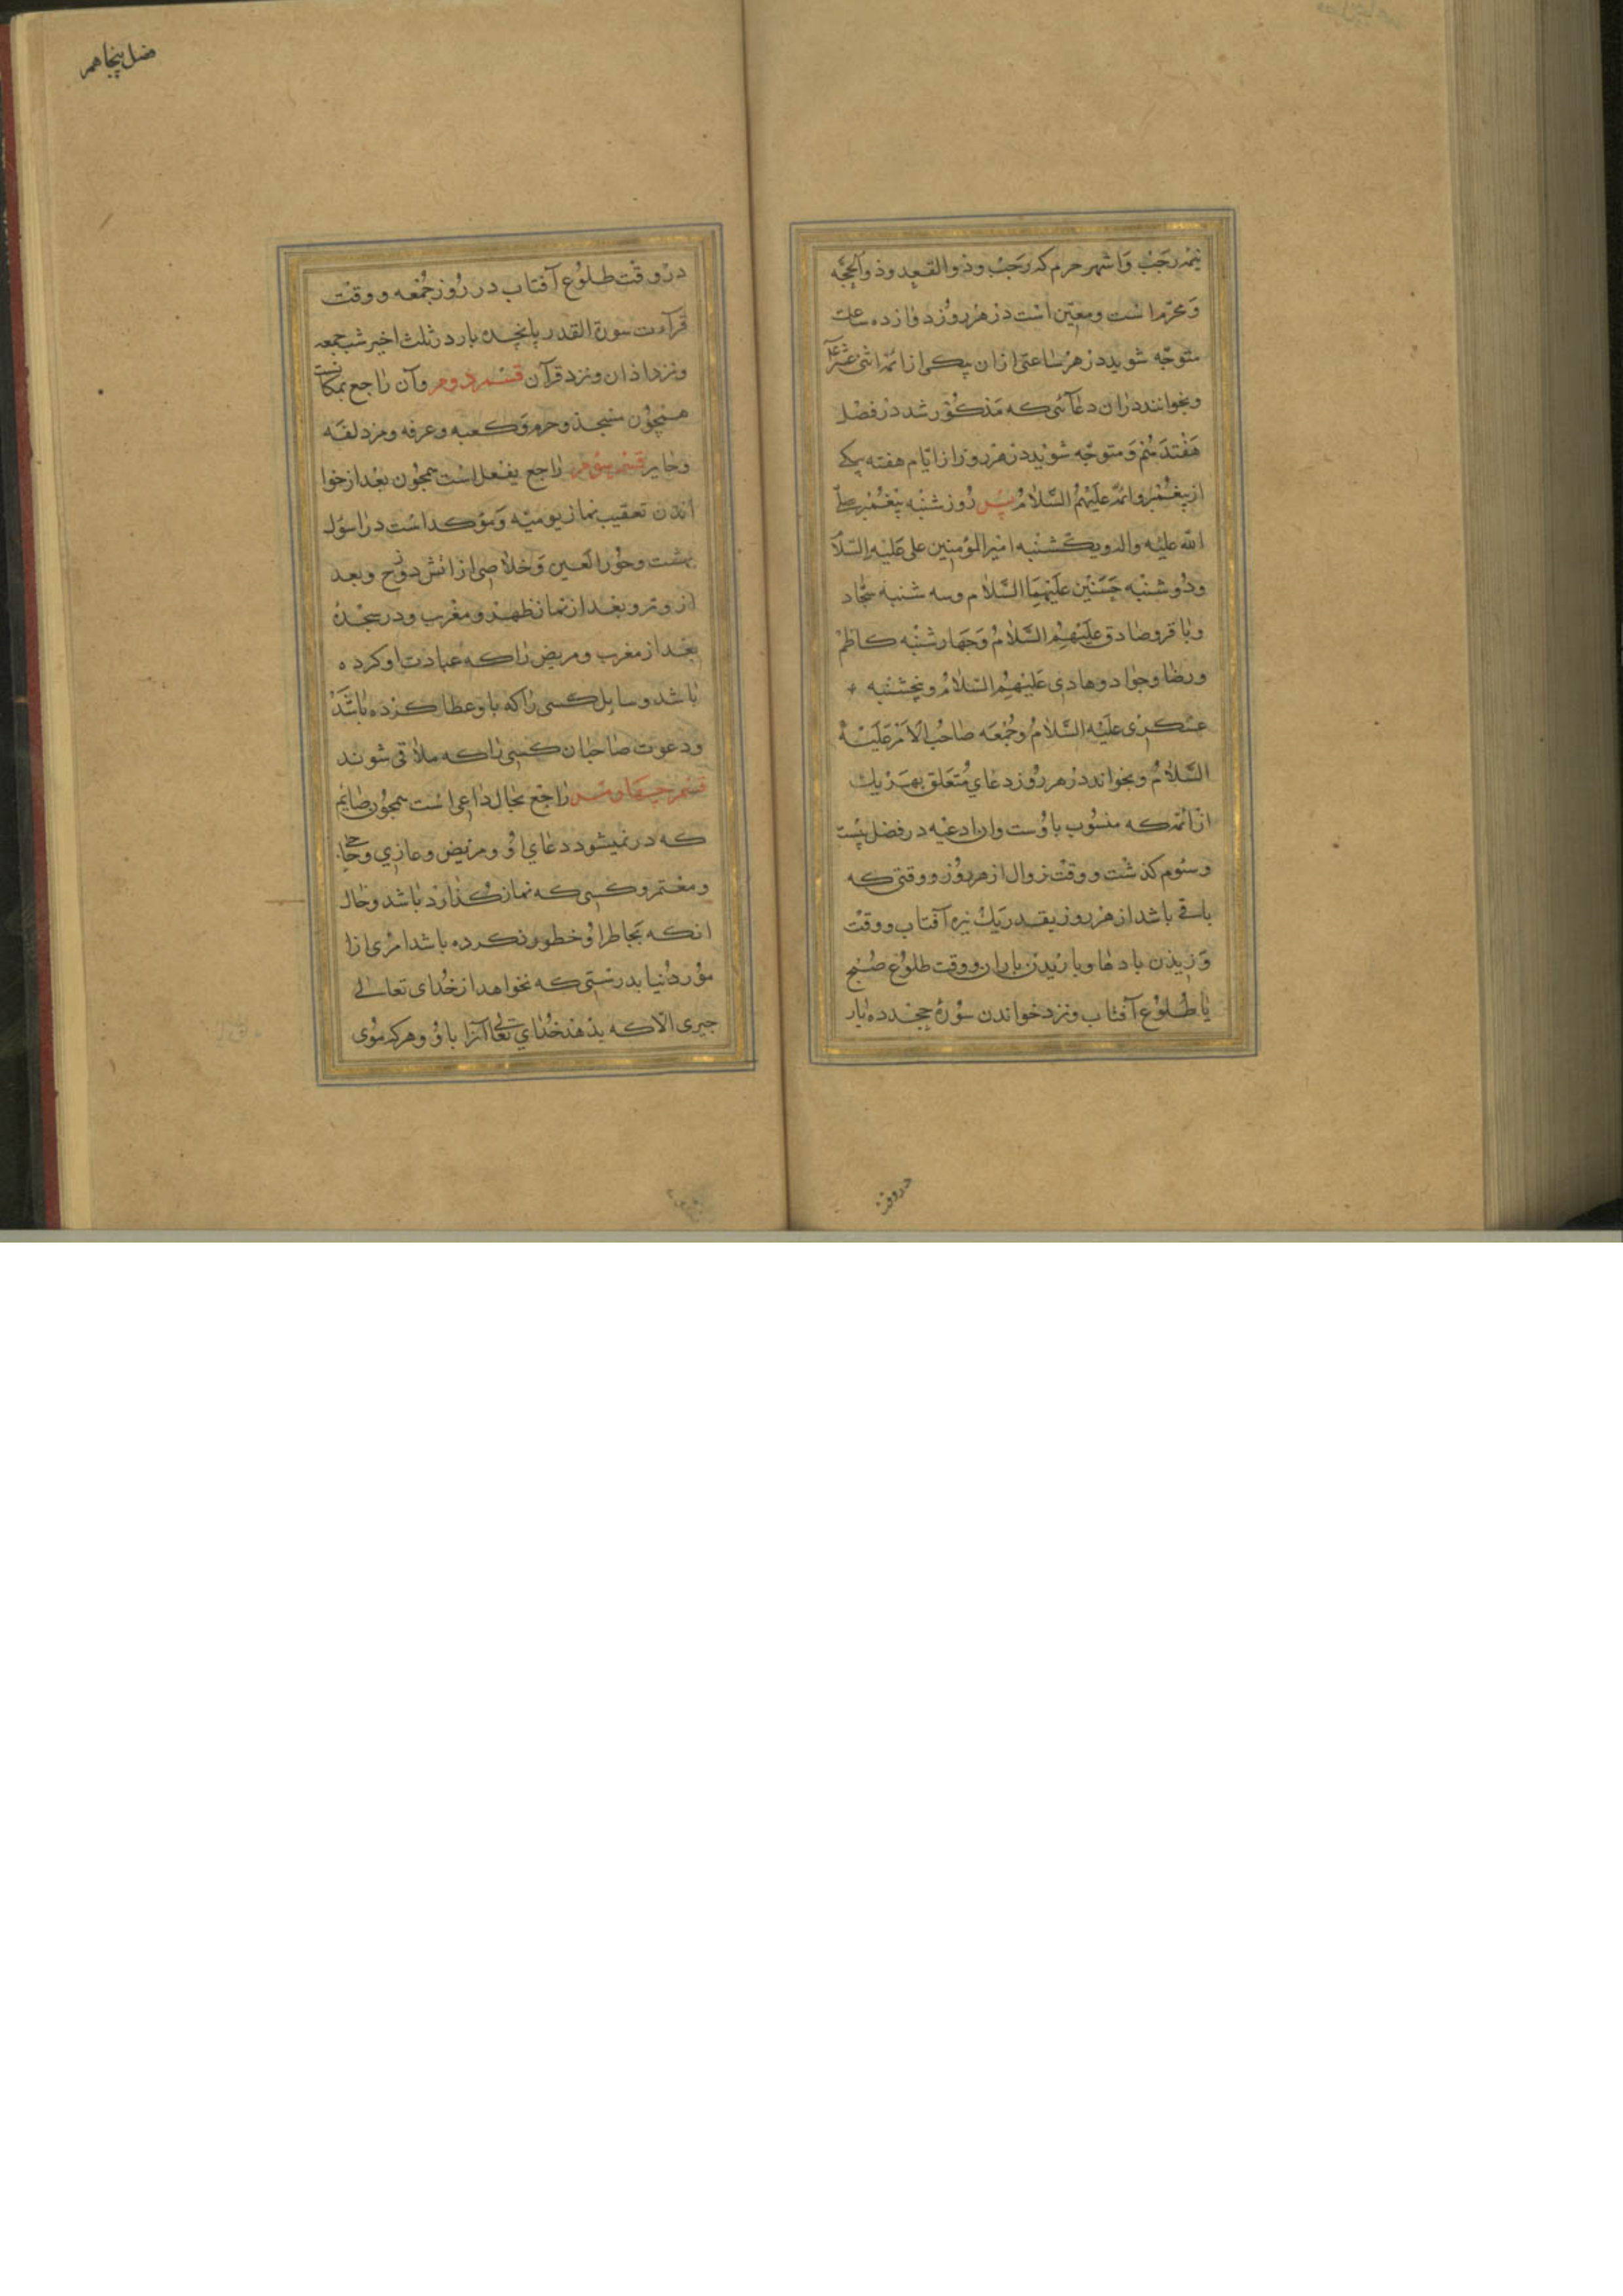 نیمه رجب و اشهر حرم که رجب و ذو القعده و ذو الحجّه
و محرّم است و معیّن است در هر روز دوازده ساعت
متوجّه شوید در هر ساعتی از ان بیکی از ائمّه اثنی عشر
و بخوانند دران دعائی که مذکور شد در فصل
هفتدهم و متوجّه شوید در هر روز از ایّام هفته بیکی
از پیغمبر و ائمّه علیهم السّلام پس روز شنبه پیغمبر صلّی
الله علیه واله و یکشنبه امیر المؤمنین علی علیه السّلا
و دو شنبه حسنین علیهما السّلام و سه شنبه سجّاد
و باقر و صادق علیهم السّلام و چهار شنبه کاظم
و رضا و جواد و هادی علیهم السّلام و پنجشنبه
عسکری علیه السّلام و جمعه صاحب الامر علیه
السّلام و بخواند در هر روز دعای متعلق بهر یك
از ائمّه که منسوب باوست و این ادعیه در فصل بیست
و سئوم کذشت و وقت زوال از هر روز و وقتی که
باقی باشد از هر روز بقدر یك نیزه آفتاب و وقت
وزیدن بادها و باریدن باران و وقت طلوع صبح
یا طلوع آفتاب و نزد خواندن سوره جحد ده بار
در وقت
فصل پنجاهم
در وقت طلوع آفتاب در روز جمعه و وقت
قرآءت سورة القدر پانجده بار در ثلث اخیر شب جمعه
و نزد اذان و نزد قرآن قسم دوم و آن راجع بمکانست
همچون مسجد و حرم و کعبه و عرفه و مزدلفه
و حایر قسم سوم راجع بفعل است همچون بعد از خوا
اندن تعقیب نماز یومیّه و مؤکد است در او سؤال
بهشت و حور العین و خلاصی از اتش دوزخ و بعد
از وتر و بعد از نماز ظهر و مغرب و در سجدهٔ
بعد از مغرب و مریض را که عیادت او کرده
باشد و سایل کسی را که باو عطا کرده باشد
و دعوت صاحبان کسی را که ملاقی شوند
قسم چهارم راجع بحال داعی است همچون صایم
که رد نمیشود دعای او و مریض و غازی و حاجی
و معتمر و کسی که نماز گذارد باشد و حال
انکه بخاطر او خطور نکرده باشد امری از ا
مور دنیا بدرستی که نخواهد از خدای تعالی
جیزی الّا که بدهد خدای تعالی آنرا باو و هر که موی